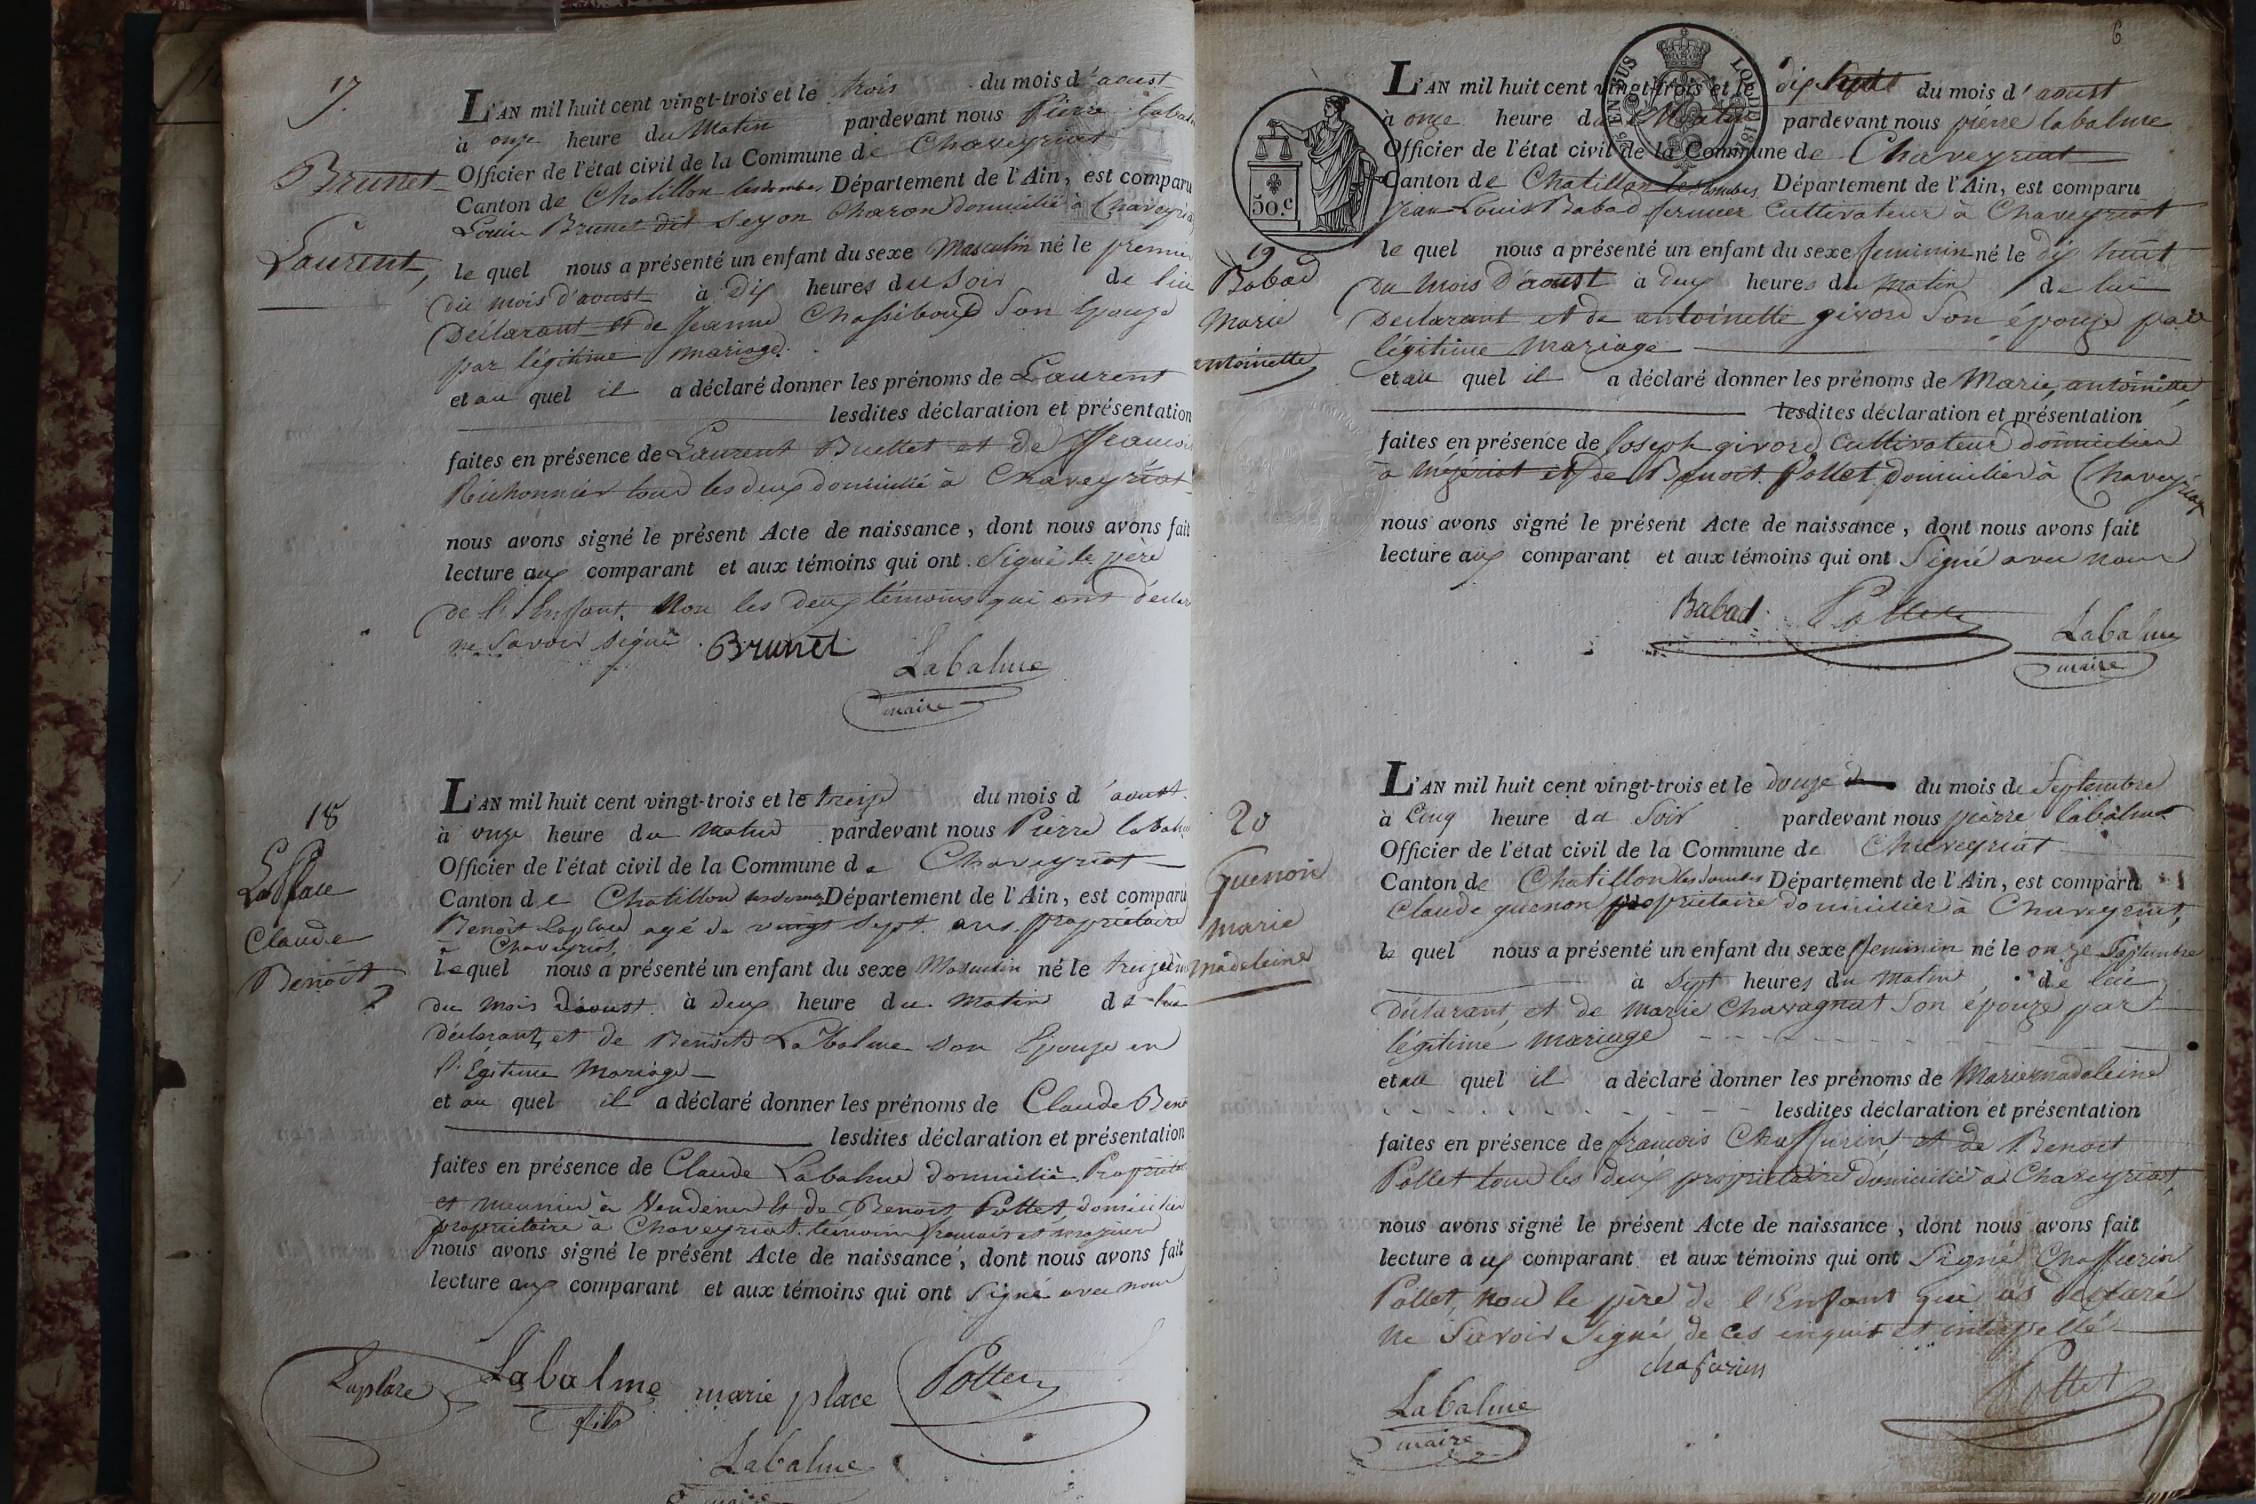 17
Brunet
Laurent,
L'AN mil huit cent vingt-trois et le trois du mois d'aoust
à onze heure du Matin pardevant nous Pierre labalme
Officier de l'état civil de la Commune de Chaveyriat
Canton de Chatillon lesdombes Département de l'Ain, est comparu
Louis Brunet dit Seyon Charon domicilié à Chaveyriat
le quel nous a présenté un enfant du sexe Masculin né le premier
du mois d'aoust à Dix heures du Soir de lui
Declarant et de Jeanne Chassiboud Son Epouze
par légitime mariage.
et au quel il a déclaré donner les prénoms de Laurent
lesdites déclaration et présentation
faites en présence de Laurent Buellet et de francois
Richonnier tous les deux domicilié à Chaveyriat
nous avons signé le présent Acte de naissance, dont nous avons fait
lecture aux comparant et aux témoins qui ont Signé le père
de l'Enfant, Non les deux témoins qui ont déclaré
ne Savoir signé. Brunet
Labalme
maire
18
Laplace
Claude
Benoît
L'AN mil huit cent vingt-trois et le treize du mois d'aoust
à onze heure du Matin pardevant nous Pierre labalme
Officier de l'état civil de la Commune de Chaveyriat
Canton de Chatillon lesdombes Département de l'Ain, est comparu
Benoît Laplace agé de vingt Sept ans propriétaire
à Chaveyriat,
lequel nous a présenté un enfant du sexe Masculin né le treizième
du mois d'aoust à deux heure du matin de lui
déclarant, et de Benoite Labalme son Epouze en
Légitime Mariage
et au quel il a déclaré donner les prénoms de Claude Benoît
lesdites déclaration et présentation
faites en présence de Claude Labalme domicilié Propriétaire
et meunier à Vendeins et de Benoît Pollet domicilié
propriétaire à Chaveyriat témoins francais et majeur
nous avons signé le présent Acte de naissance, dont nous avons fait
lecture aux comparant et aux témoins qui ont Signé avec nous
Laplace Labalme fils marie place Pollet
Labalme
maire
6
50.c
L'AN mil huit cent vingt-trois et le dix huit du mois d'aoust
à onze heure du Matin pardevant nous pierre labalme
Officier de l'état civil de la Commune de Chaveyriat
Canton de Chatillon lesdombes Département de l'Ain, est comparu
Jean Louis Babad fermier cultivateur à Chaveyriat
19
Babad
Marie
antoinette
le quel nous a présenté un enfant du sexe feminin né le dix huit
Du Mois D'aoust à deux heures du Matin de lui
Declarant et de antoinette givord Son épouze par
légitime Mariage
et au quel il a déclaré donner les prénoms de Marie, antoinette,
lesdites déclaration et présentation
faites en présence de Joseph givord cultivateur domicilier
à Mézériat et de Benoit Pollet domicilier à Chaveyriat
nous avons signé le présent Acte de naissance, dont nous avons fait
lecture aux comparant et aux témoins qui ont Signé avec nous
Babad. Pollet Labalme
maire
20
Guenon
marie
madeleine
L'AN mil huit cent vingt-trois et le douze du mois de Septembre
à Cinq heure du Soir pardevant nous pierre labalme
Officier de l'état civil de la Commune de Chaveyriat
Canton de Chatillon lesdombes Département de l'Ain, est comparu
Claude guenon proprietaire domicilier à Chaveyriat,
le quel nous a présenté un enfant du sexe feminin né le onze Septembre
à Sept heures du Matin de lui
déclarant, et de marie Chavagnat Son épouze par
légitime mariage
et au quel il a déclaré donner les prénoms de Marie madeleine
lesdites déclaration et présentation
faites en présence de francois Chaffurin et de Benoit
Pollet tous les deux proprietaire domicilié à Chaveyriat,
nous avons signé le présent Acte de naissance, dont nous avons fait
lecture aux comparant et aux témoins qui ont Signé Chaffurin
Pollet, Non le père de l'Enfant qui as déclaré
Ne Savoir Signé de ces enquis et interpellé
chafurin
Labalme Pollet
maire